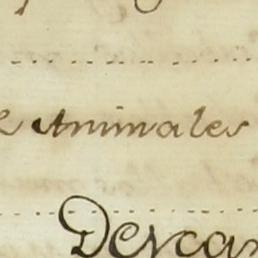 Animales
Desca